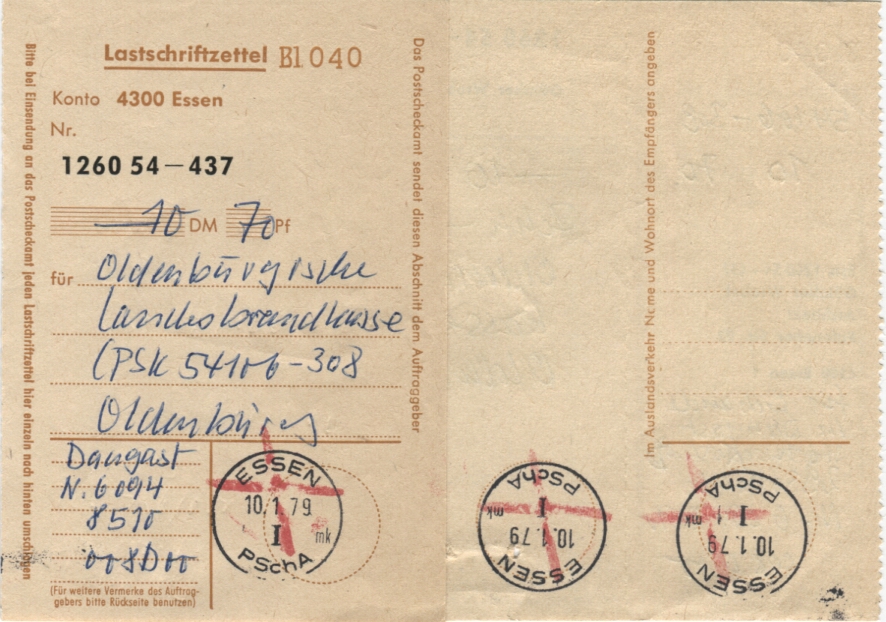 Lastschriftzettel Bl 040
Konto 4300 Essen
Nr.
1260 54—437
—10 DM 70 Pf
für Oldenburgische
Landesbrandkasse
(PSK 541 06-308
Oldenburg
Dangast
N. 6094
8510
008D00
(Für weitere Vermerke des Auftrag-
gebers bitte Rückseite benutzen)
Bitte bei Einsendung an das Postscheckamt jeden Lastschriftzettel hier einzeln nach hinten umschlagen
Das Postscheckamt sendet diesen Abschnitt dem Auftraggeber
Im Auslandsverkehr Name und Wohnort des Empfängers angeben
ESSEN
10.1.79
I mk
PSchA
ESSEN
10.1.79
I mk
PSchA
ESSEN
10.1.79
I mk
PSchA